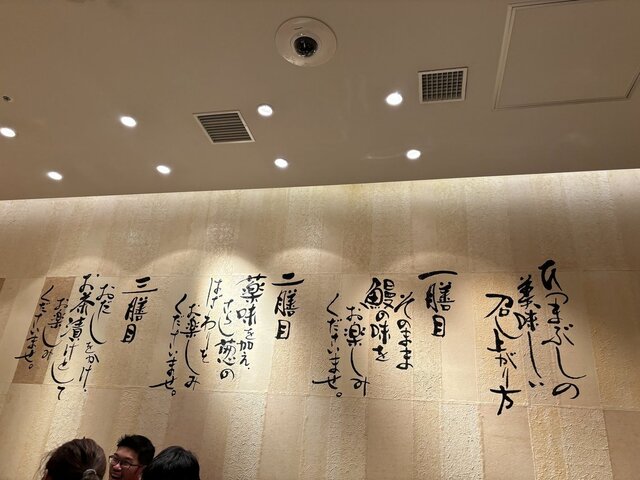 ひつまぶしの
美味しい
召し上がり方
一膳目
そのまま
鰻の味を
お楽しみ
くださいませ。
二膳目
薬味を加え、
さらし葱の
はぎわりと
お楽しみ
くださいませ。
三膳目
おだしをかけ、
お茶漬けとして
お楽しみ
くださいませ。